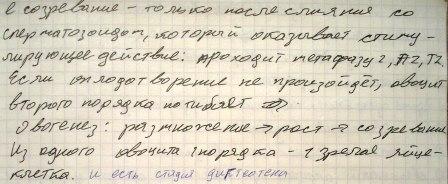 е созревание - только после слияния со
сперматозоидом, который оказывает стиму-
лирующее действие: проходит метафазу 2, А2, Т2.
Если оплодотворение не произойдёт, овоцит
второго порядка погибает
Овогенез: размножение → рост → созревание
Из одного овоцита 1 порядка - 1 зрелая яйце-
клетка. и есть стадия диктиотена